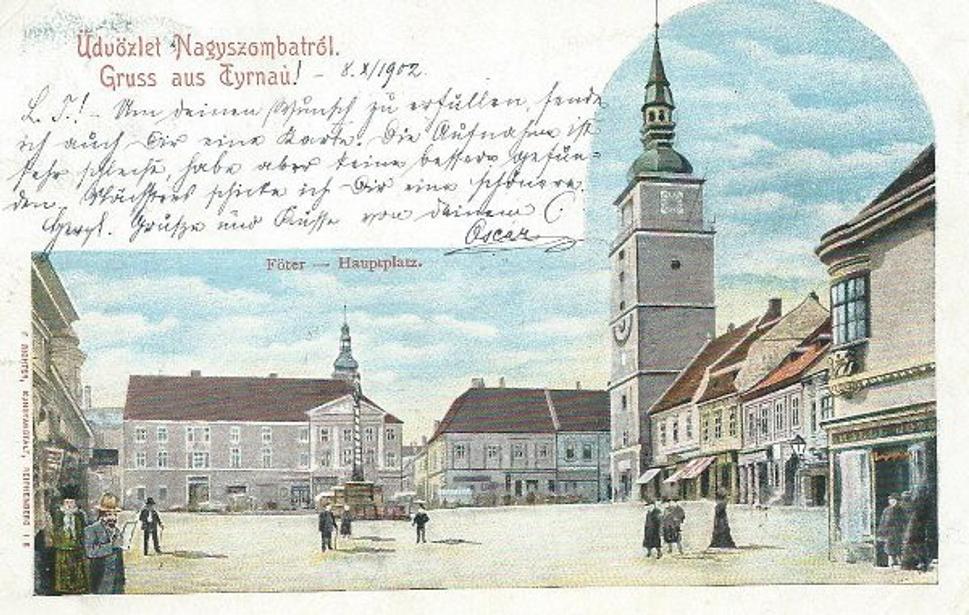 Üdvözlet Nagyszombatról.
Gruss aus Tyrnau! – 8.X/1902.
L. T.! – Um deinen Wunsch zu erfüllen, sende
ich auch Dir eine Karte. Die Aufnahme ist
sehr schlecht, habe aber keine bessere gefun=
den. Nächstens schicke ich Dir eine schönere.
Herzl. Grüße und Küsse von deinem C.
Oscar
Föter — Hauptplatz.